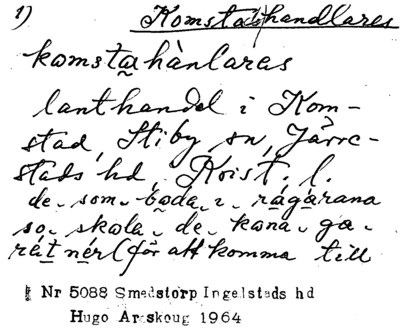 1) Komstadshandlares
komstahànlares
lanthandel i Kom-
stad, Stiby sn, Järre-
stads hd, Krist. l.
de som boda i rågårana
so skola de kåna gå
rát nér (för att komma till
Nr 5088 Smedstorp Ingelstads hd
Hugo Areskoug 1964